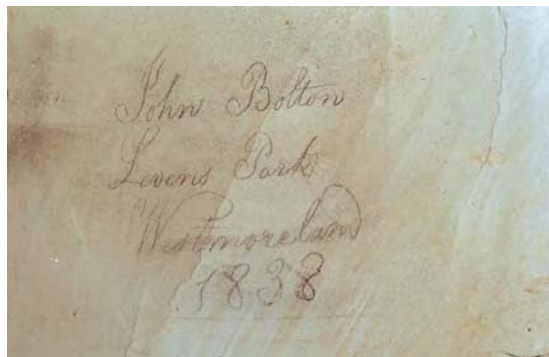 John Bolton
Levens Park
Westmoreland
1838